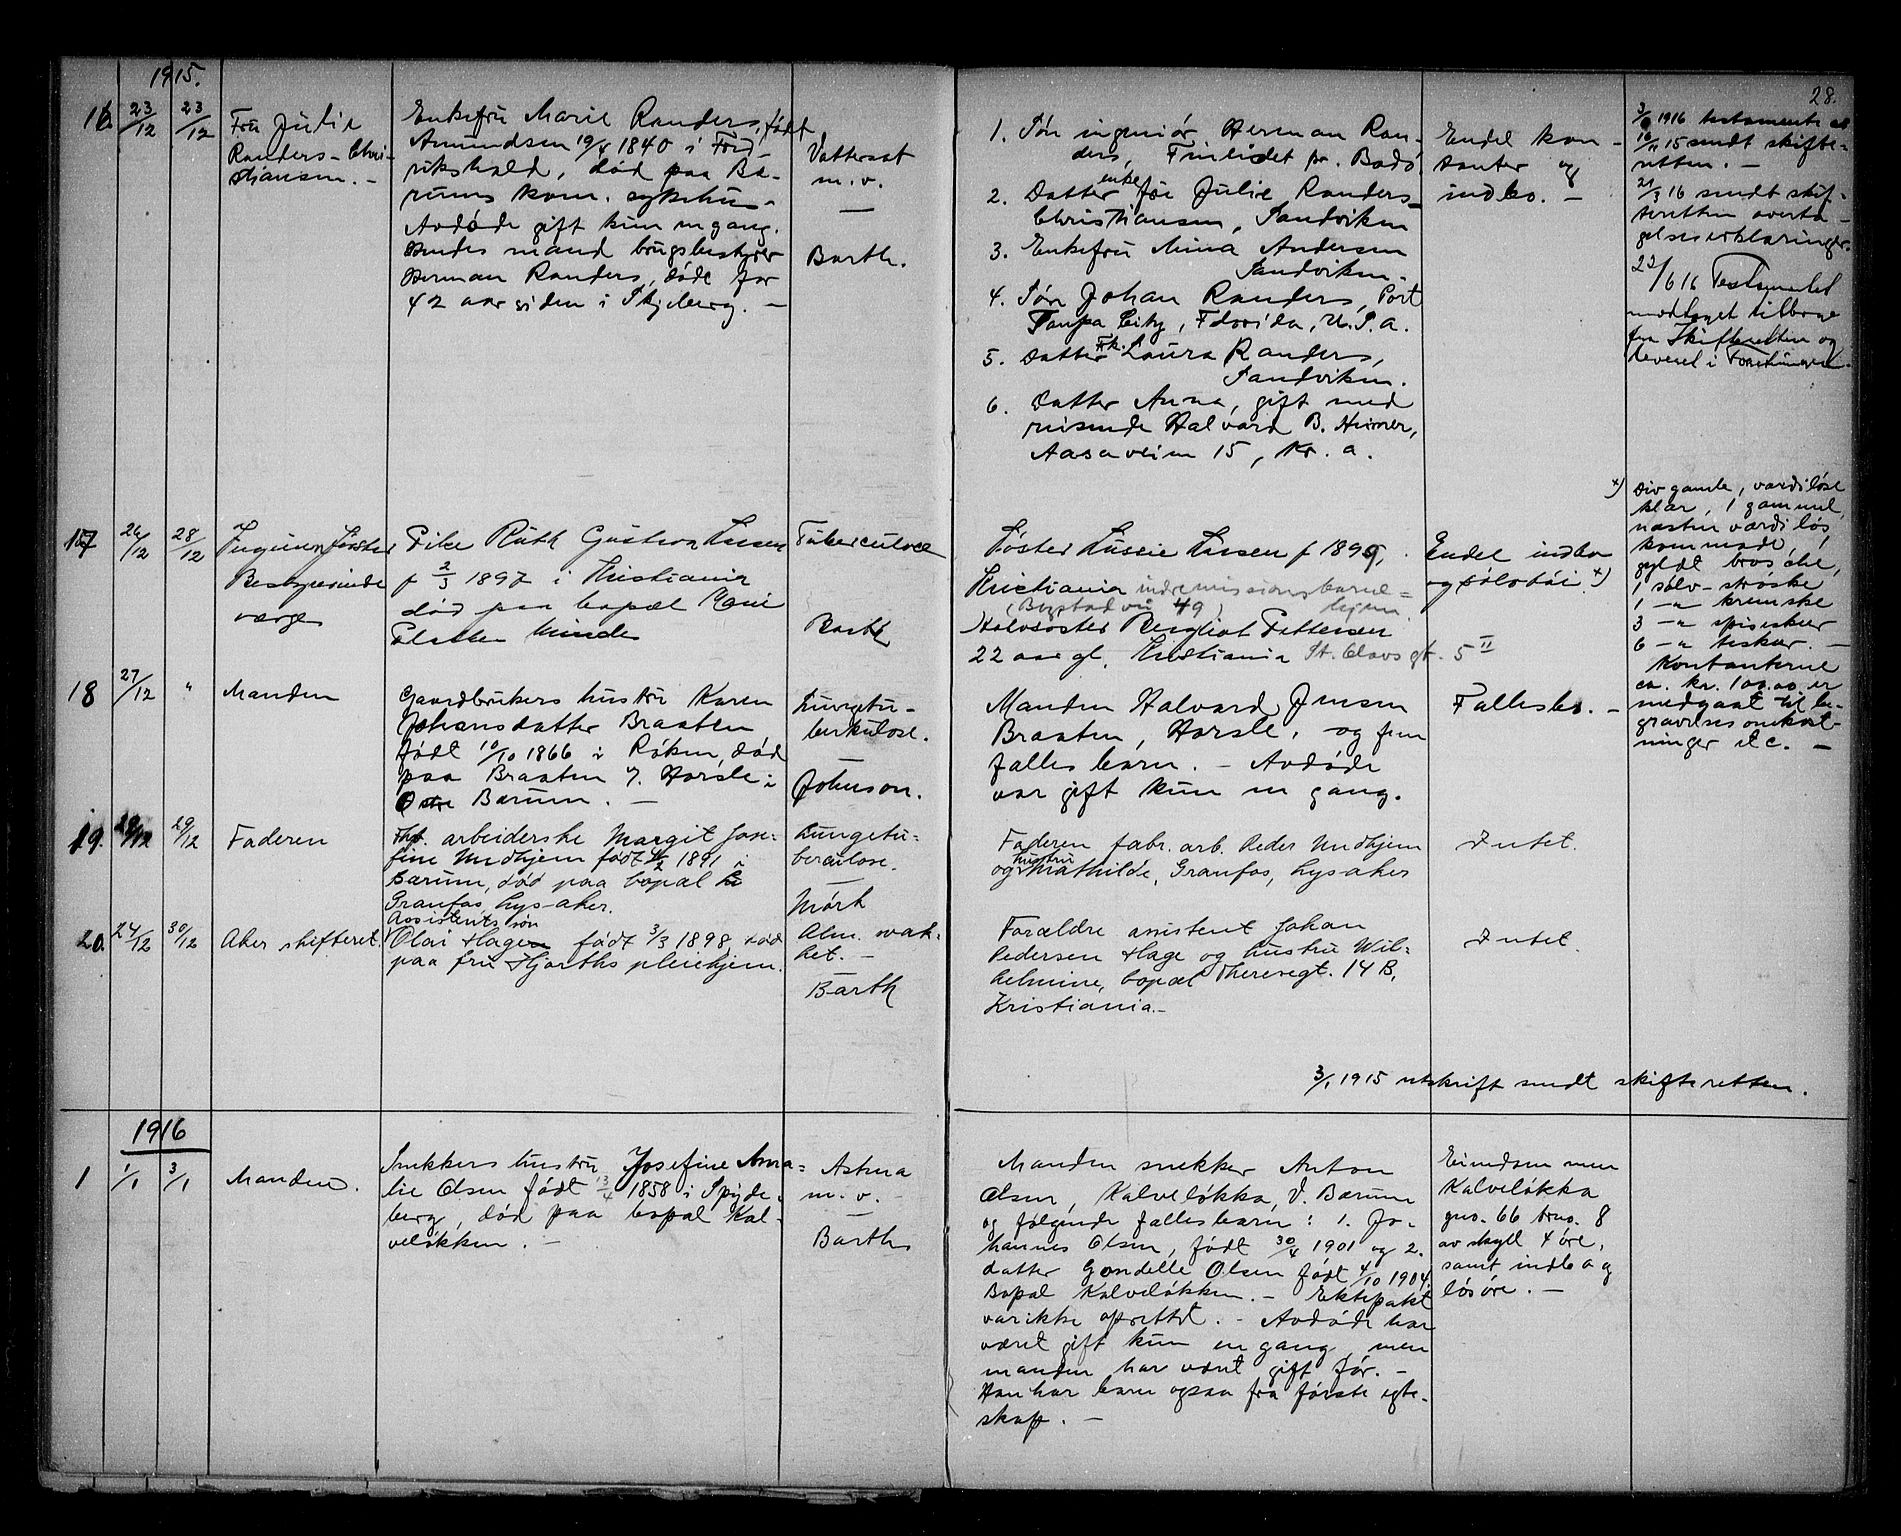 1915.
28.
16. 23/12 23/12 Fru Julie
Randers-Chri-
stiansen. -
Enkefru Marie Randers, født
Amundsen 19/8 1840 i Fred-
rikshald, død paa Bæ-
rums kom. sykehus.
Avdøde gift kun en gang.
Hendes mand brugsbestyrer
Herman Randers, døde for
42 aar siden i Skjeberg. -
Vattersot
m.v.
—
Barth.
1. Søn ingeniør Herman Ran-
ders, Finlidet pr. Bodø
2. Datter enkefru Julie Randers-
Christiansen, Sandviken
3. Enkefru Mina Andersen
Sandviken.
4. Søn Johan Randers, Port
Tampa City, Florida, U.S.A.
5. Datter Frk. Laura Randers,
Sandviken.
6. Datter Anna, gift med
reisende Halvard B. Heimer,
Aasaveien 15, Kr.a.
Endel kon-
tanter og
indbo. -
3/1 1916 testamente av
16/11 15 sendt skifte-
retten. -
21/3 16 sendt skif-
teretten overta-
gelseserklæringer.
23/6 16 Testamentet
modtaget tilbage
fra Skifteretten og
leveret i
17 26/12 28/12
Bestyrerinde
værge
Pike Ruth Gustava Larsen
f 2/3 1897 i Kristiania
død paa bopæl
Minde
Tuberculose
Barth
Søster Lussie Larsen f 1899,
Kristiania indremissionsbarne=
hjem
(Bogstadvei 49)
Halvsøster Bergliot Pettersen
22 aar gl. Kristiania St. Olavs gt. 5 II
Endel indbo
og sølvtøi x)
x) Div gamle, værdiløse
klær, 1 gammel,
næsten værdiløs
kommode, 1
gyldt brosche,
1 sølv-strøske
1 -"- kremske
3 -"- spiseskeer
6 -"- teskeer. -
Kontanterne
ca. kr. 100.00 er
medgaat til be-
gravelsesomkost-
ninger etc. -
18 27/12 " Manden
Gaardbrukers hustru Karen
Johansdatter Braaten
født 10/10 1866 i Røken, død
paa Braaten u. Horsle i
Østre Bærum. -
Lungetu-
berkulose.
—
Johnson.
Manden Halvard Jensen
Braaten, Horsle, og fem
fælles barn. - Avdøde
var gift kun en gang.
Fællesbo. -
19. 29/12 29/12 Faderen
Fhv. arbeiderske Margit Jose-
fine Nedhjem født 4/2 1891 i
Bærum, død paa bopæl
Granfos, Lysaker.
Lungetu-
berculose.
—
Mørk
Faderen fabr. arb. Peder Nedhjem
og hustru Mathilde, Granfos, Lysaker
Intet.
20. 24/12 30/12 Aker skifteret.
Assistents søn
Olai Hagen født 3/3 1898, død
paa fru Hjorths pleiehjem.
Alm. svak-
het. -
—
Barth
Forældre assistent Johan
Pedersen Hage og hustru Wil-
helmine, bopæl Theresegt. 14 B,
Kristiania. -
Intet.
3/1 1915 utskrift sendt skifteretten.
1916
1 1/1 3/1 Manden.
Snekkers hustru Josefine Ama=
lie Olsen født 13/4 1858 i Spyde-
berg, død paa bopæl Kal-
veløkken. -
Astma
m.v. -
—
Barth
Manden snekker Anton
Olsen, Kalveløkka, V. Bærum
og følgende fællesbarn: 1. Jo-
hannes Olsen, født 30/4 1901 og 2.
datter Gondelle Olsen født 4/10 1904.
Bopæl Kalveløkken. - Ektepakt
var ikke oprettet. - Avdøde har
været gift kun en gang, men
manden har været gift før. -
Han har barn ogsaa fra første egte-
skap. -
Eiendommen
Kalveløkka
gno. 66 bno. 8
av skyld 4 øre,
samt indbo og
løsøre. -